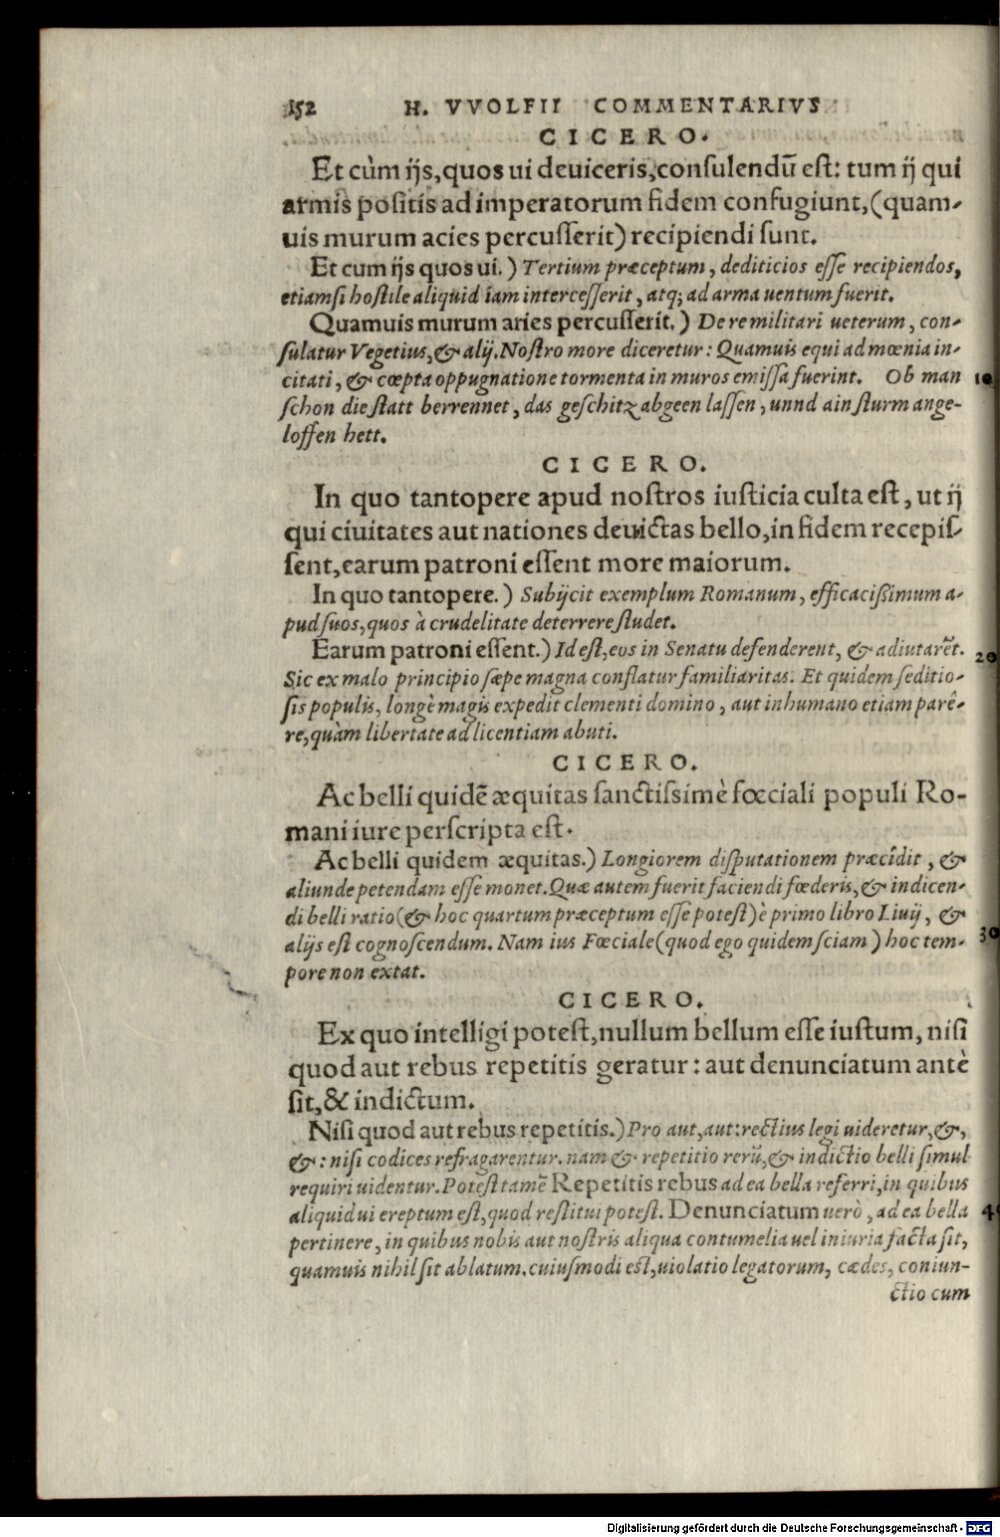 152 H. VVOLFII COMMENTARIVS
CICERO.
Et cùm ijs, quos ui deuiceris, consulendũ est: tum ij qui
armis positis ad imperatorum fidem confugiunt, (quam-
uis murum acies percusserit) recipiendi sunt.
Et cum ijs quos ui.) Tertium præceptum, dediticios esse recipiendos,
etiamsi hostile aliquid iam intercesserit, atq; ad arma uentum fuerit.
Quamuis murum aries percusserit.) De re militari ueterum, con-
sulatur Vegetius, & alij. Nostro more diceretur: Quamuis equi ad mœnia in-
citati, & cœpta oppugnatione tormenta in muros emissa fuerint. Ob man 10
schon die statt berrennet, das geschitz abgeen lassen, unnd ain sturm ange-
loffen hett.
CICERO.
In quo tantopere apud nostros iusticia culta est, ut ij
qui ciuitates aut nationes deuictas bello, in fidem recepis-
sent, earum patroni essent more maiorum.
In quo tantopere.) Subijcit exemplum Romanum, efficacißimum a-
pud suos, quos à crudelitate deterrere studet.
Earum patroni essent.) Id est, eos in Senatu defenderent, & adiutarẽt. 20
Sic ex malo principio sæpe magna conflatur familiaritas. Et quidem seditio-
sis populis, longè magis expedit clementi domino, aut inhumano etiam parê-
re, quàm libertate ad licentiam abuti.
CICERO.
Ac belli quidẽ æquitas sanctissimè fœciali populi Ro-
mani iure perscripta est.
Ac belli quidem æquitas.) Longiorem disputationem præcîdit, &
aliunde petendam esse monet. Quæ autem fuerit faciendi fœderis, & indicen-
di belli ratio (& hoc quartum præceptum esse potest) è primo libro Liuij, &
alijs est cognoscendum. Nam ius Fœciale (quod ego quidem sciam) hoc tem- 30
pore non extat.
CICERO.
Ex quo intelligi potest, nullum bellum esse iustum, nisi
quod aut rebus repetitis geratur: aut denunciatum antè
sit, & indictum.
Nisi quod aut rebus repetitis.) Pro aut, aut: rectius legi uideretur, &,
&: nisi codices refragarentur. nam & repetitio rerũ, & indictio belli simul
requiri uidentur. Potest tamẽ Repetitis rebus ad ea bella referri, in quibus
aliquid ui ereptum est, quod restitui potest. Denunciatum uerò, ad ea bella 40
pertinere, in quibus nobis aut nostris aliqua contumelia uel iniuria facta sit,
quamuis nihil sit ablatum. cuiusmodi est, uiolatio legatorum, cædes, coniun-
ctio cum
Digitalisierung gefördert durch die Deutsche Forschungsgemeinschaft - DFG